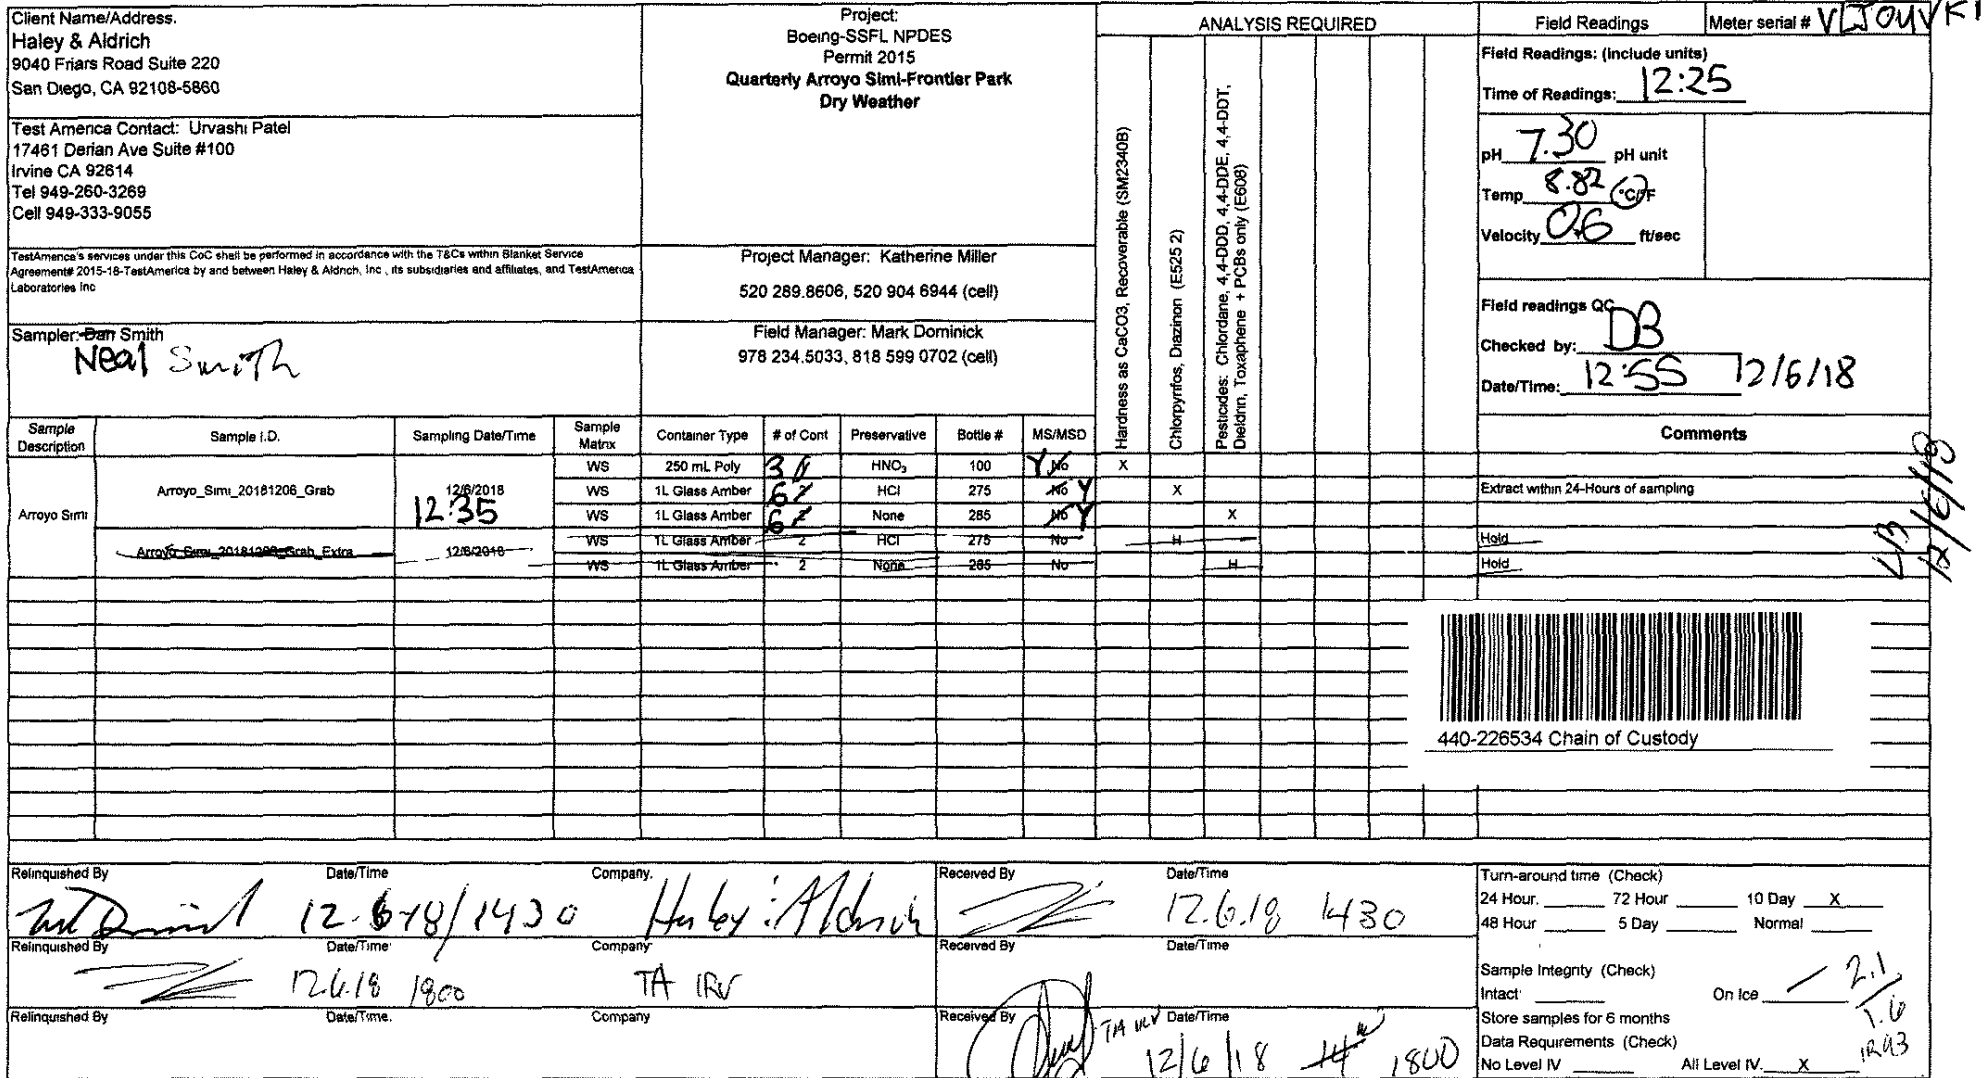 Client Name/Address.
Haley & Aldrich
9040 Friars Road Suite 220
San Diego, CA 92108-5860
Test America Contact: Urvashi Patel
17461 Derian Ave Suite #100
Irvine CA 92614
Tel 949-260-3269
Cell 949-333-9055
TestAmerica's services under this CoC shall be performed in accordance with the T&Cs within Blanket Service
Agreement# 2015-18-TestAmerica by and between Haley & Aldrich, Inc , its subsidiaries and affiliates, and TestAmerica
Laboratories Inc
Sampler: Dan Smith
Neal Smith
Project:
Boeing-SSFL NPDES
Permit 2015
Quarterly Arroyo Simi-Frontier Park
Dry Weather
Project Manager: Katherine Miller
520 289.8606, 520 904 6944 (cell)
Field Manager: Mark Dominick
978 234.5033, 818 599 0702 (cell)
ANALYSIS REQUIRED
Hardness as CaCO3, Recoverable (SM2340B)
Chlorpyrifos, Diazinon (E525 2)
Pesticides: Chlordane, 4,4-DDD, 4,4-DDE, 4,4-DDT,
Dieldrin, Toxaphene + PCBs only (E608)
Field Readings Meter serial #
Field Readings: (Include units)
Time of Readings: 12:25
pH 7.30 pH unit
Temp 8.82 °C/°F
Velocity 0.6 ft/sec
Field readings QC
Checked by: DB
Date/Time: 12:55 12/6/18
Sample Description Sample I.D. Sampling Date/Time Sample Matrix Container Type # of Cont Preservative Bottle # MS/MSD Comments
WS 250 mL Poly 3 HNO3 100 Y No X
Arroyo_Simi_20181206_Grab 12/6/2018 WS 1L Glass Amber 6 2 HCl 275 No Y X Extract within 24-Hours of sampling
Arroyo Simi 12:35 WS 1L Glass Amber 6 2 None 285 No Y X
Arroyo_Simi_20181206_Grab_Extra 12/6/2018 WS 1L Glass Amber 2 HCl 275 No H Hold
WS 1L Glass Amber 2 None 285 No H Hold
12/6/18
440-226534 Chain of Custody
Relinquished By Date/Time Company. Received By Date/Time
12-6-18/1430 Haley & Aldrich 12.6.18 1430
Relinquished By Date/Time Company Received By Date/Time
12.6.18 1800 TA IRV
Relinquished By Date/Time. Company Received By Date/Time
12/6/18 1800
Turn-around time (Check)
24 Hour. 72 Hour 10 Day X
48 Hour 5 Day Normal
Sample Integrity (Check)
Intact On Ice 2.1
1.6
Store samples for 6 months
Data Requirements (Check)
No Level IV All Level IV. X